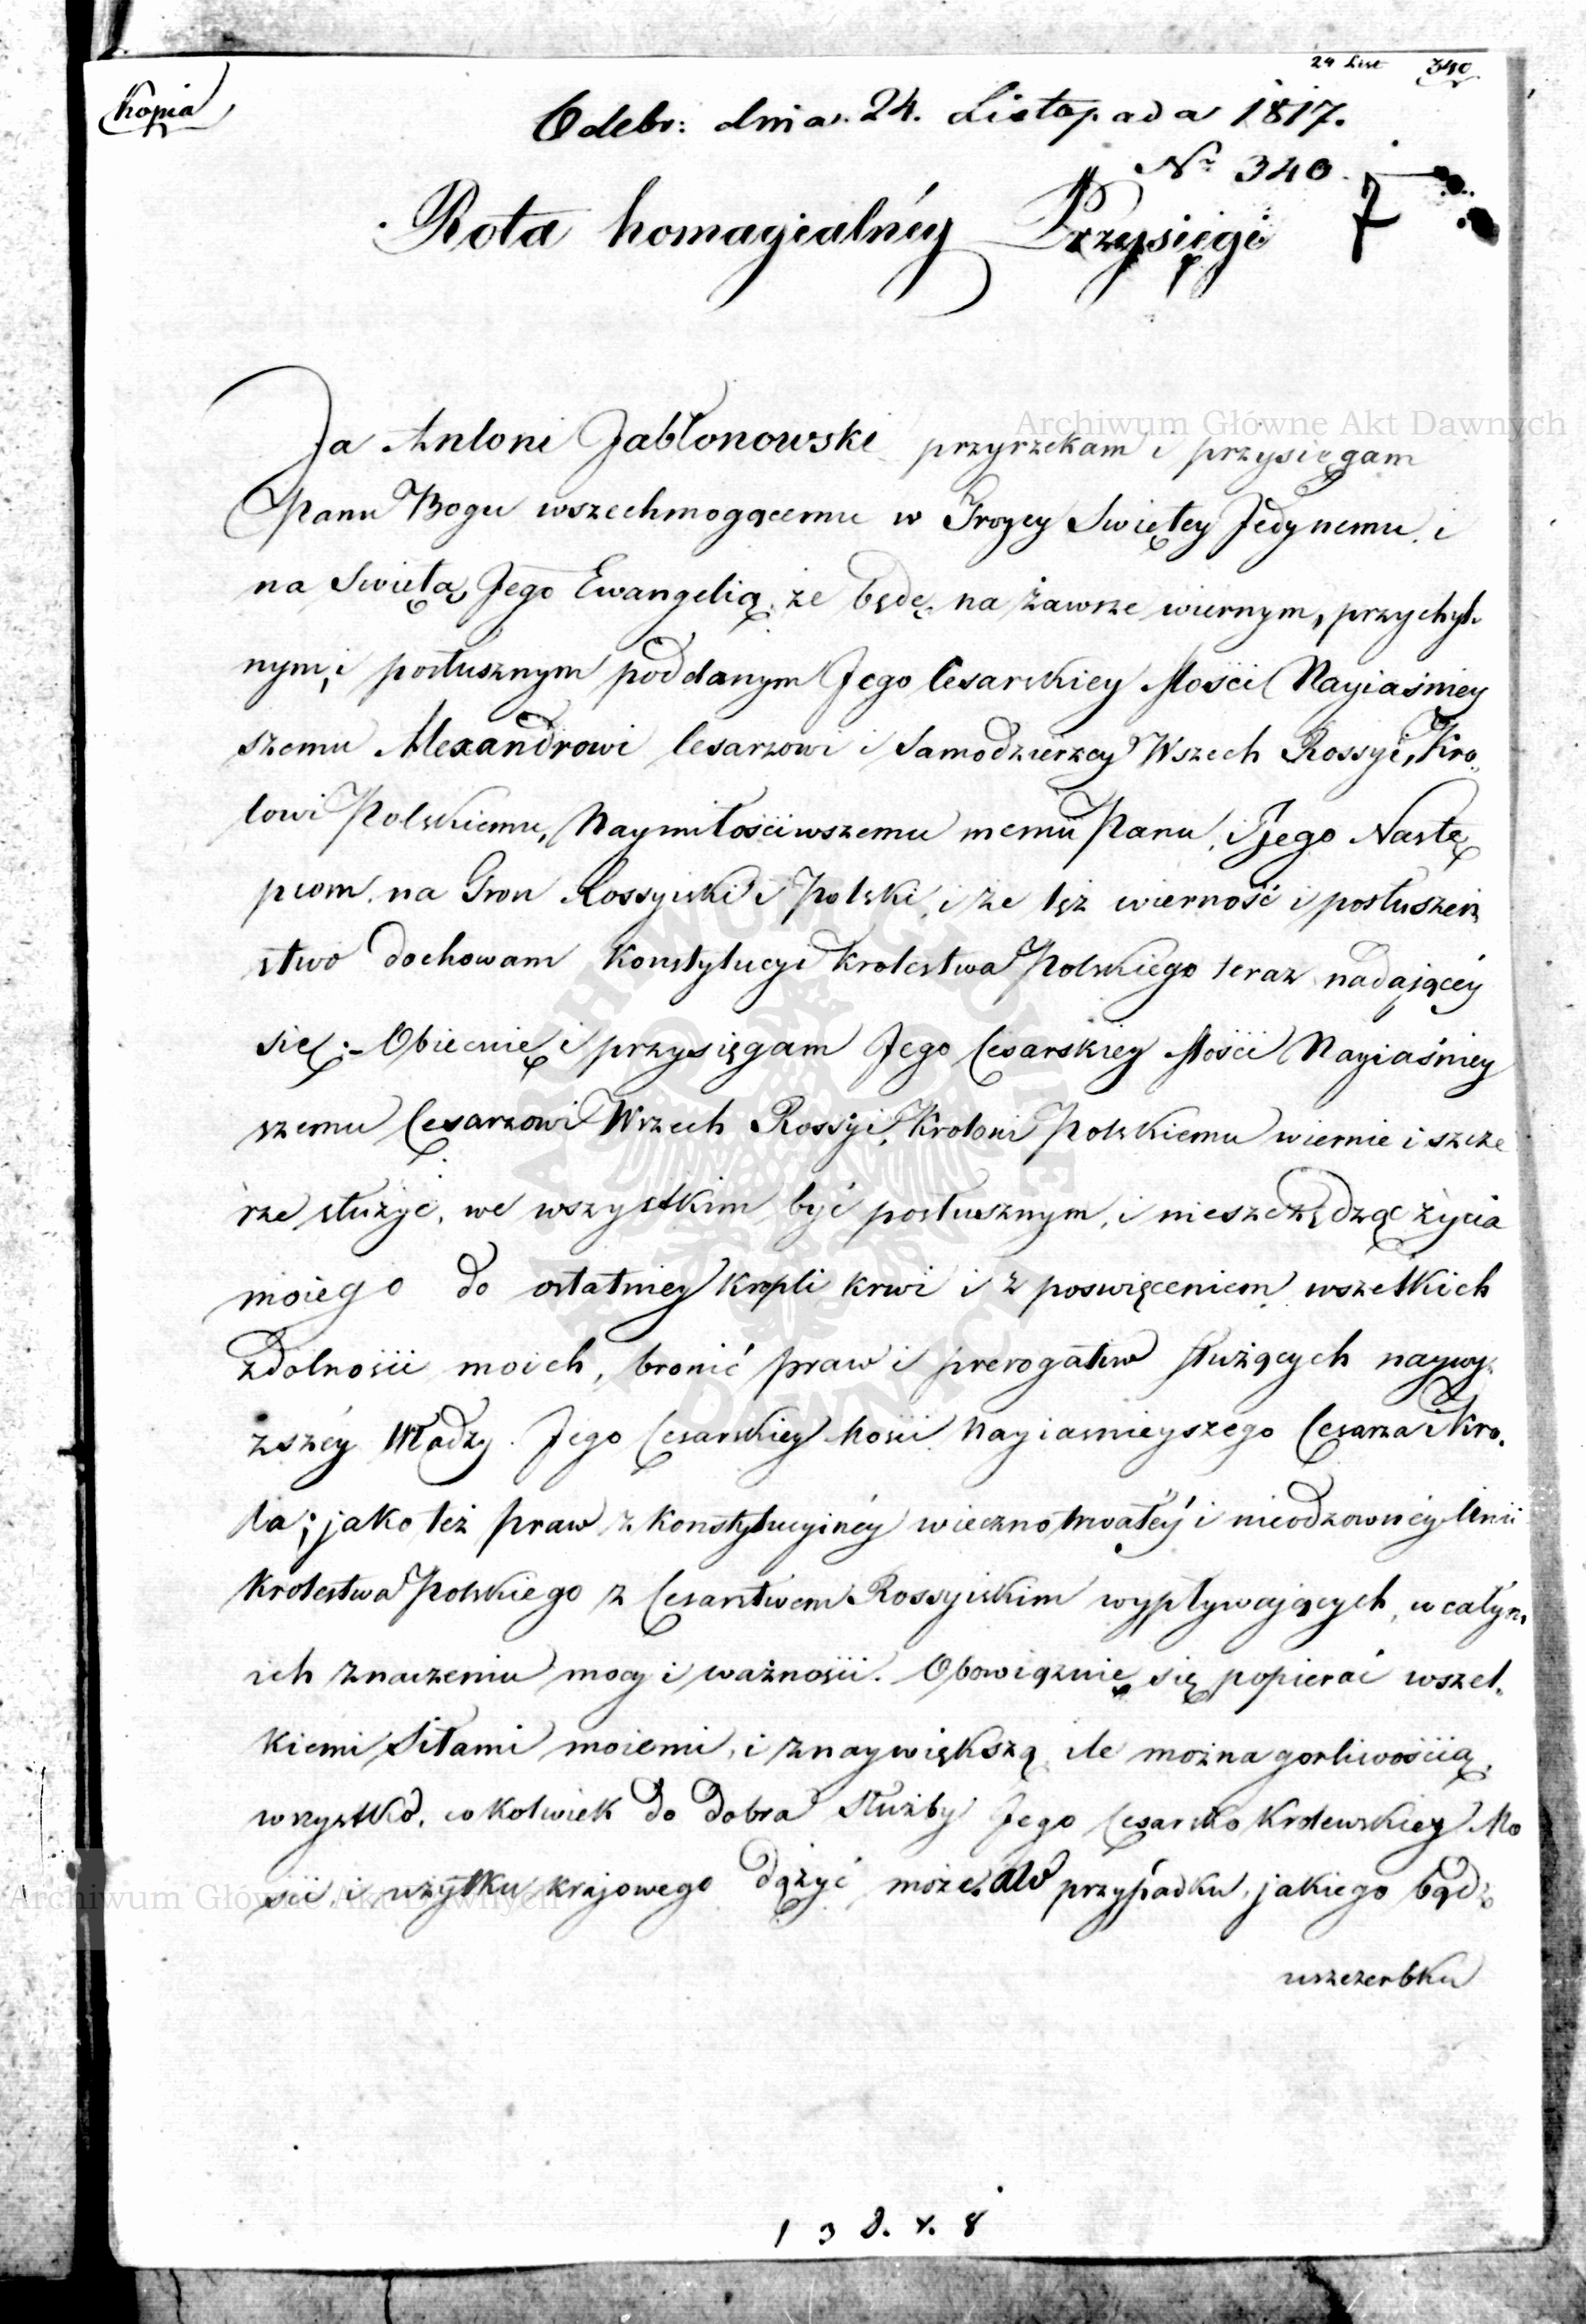 24 List 340
Kopia
Odebr: dnia. 24. Listopada 1817.
Nr 340.
7
Rota homagialnéy Przysięgi
Archiwum Główne Akt Dawnych
Ja Antoni Jabłonowski przyrzekam i przysięgam
Panu Bogu wszechmogącemu w Trojcy Swiętey Jedynemu, i
na Swiętą Jego Ewangelią, że będę na zawsze wiernym, przychyl-
nym, i posłusznym poddanym Jego Cesarskiey Mości Nayiaśniey
szemu Alexandrowi Cesarzowi i Samodzierzcy Wszech Rossyi, Kro-
lowi Polskiemu, Naymiłościwszemu memu Panu, i Jego Nastę
pcom na Tron Rossyiski i Polski, i że tęż wierność i posłuszeń
stwo dochowam Konstytucyi Krolestwa Polskiego teraz nadającéy
się;- Obiecuię i przysięgam Jego Cesarskiey Mości Nayiaśniey
szemu Cesarzowi Wszech Rossyi, Krolowi Polskiemu wiernie i szcze
rze służyć, we wszystkim być posłusznym, i nieszczędząc życia
moiego do ostatniey kropli krwi i z poswięceniem wszelkich
zdolności moich, bronić praw i prerogatiw służących naywy-
zszéy Władzy Jego Cesarskiey Mości Nayiasnieyszego Cesarza i Kro-
la; jako też praw z Konstytucyinéy wiecznotrwałéy i nieodzownéy Unii
Krolestwa Polskiego z Cesarstwem Rossyiskim wypływających, w całym
ich znaczeniu mocy i ważności. Obowiązuię się popierać wszel-
kiemi siłami moiemi, i z naywiększą ile można gorliwością,
wszystko, cokolwiek do dobra służby Jego Cesarsko Krolewskiey Mo
ści i użytku krajowego dążyć może, a w przypadku, jakiego bądź
Archiwum Główne Akt Dawnych
uszczerbku
1 3 8. 8